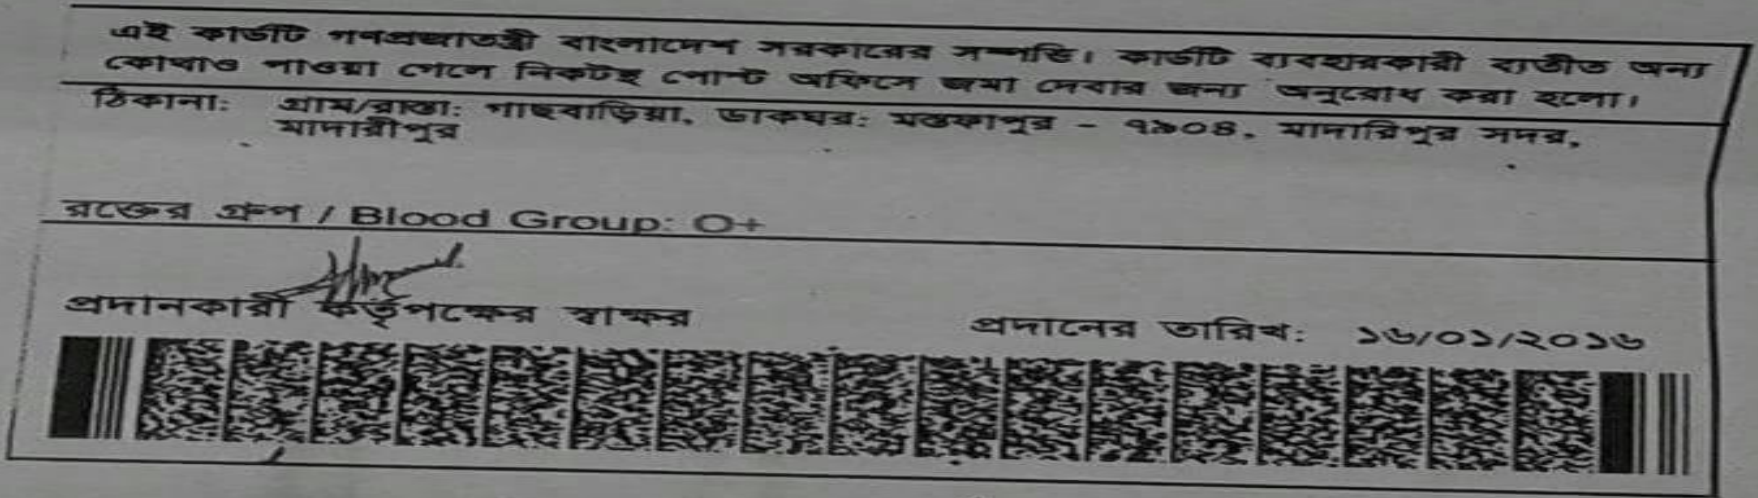 এই কার্ডটি গণপ্রজাতন্ত্রী বাংলাদেশ সরকারের সম্পত্তি। কার্ডটি ব্যবহারকারী ব্যতীত অন্য
কোথাও পাওয়া গেলে নিকটস্থ পোস্ট অফিসে জমা দেবার জন্য অনুরোধ করা হলো।
ঠিকানা: গ্রাম/রাস্তা: গাছবাড়িয়া, ডাকঘর: মস্তফাপুর - ৭৯০৪, মাদারিপুর সদর,
মাদারীপুর
রক্তের গ্রুপ / Blood Group: O+
প্রদানকারী কর্তৃপক্ষের স্বাক্ষর প্রদানের তারিখ: ১৬/০১/২০১৬